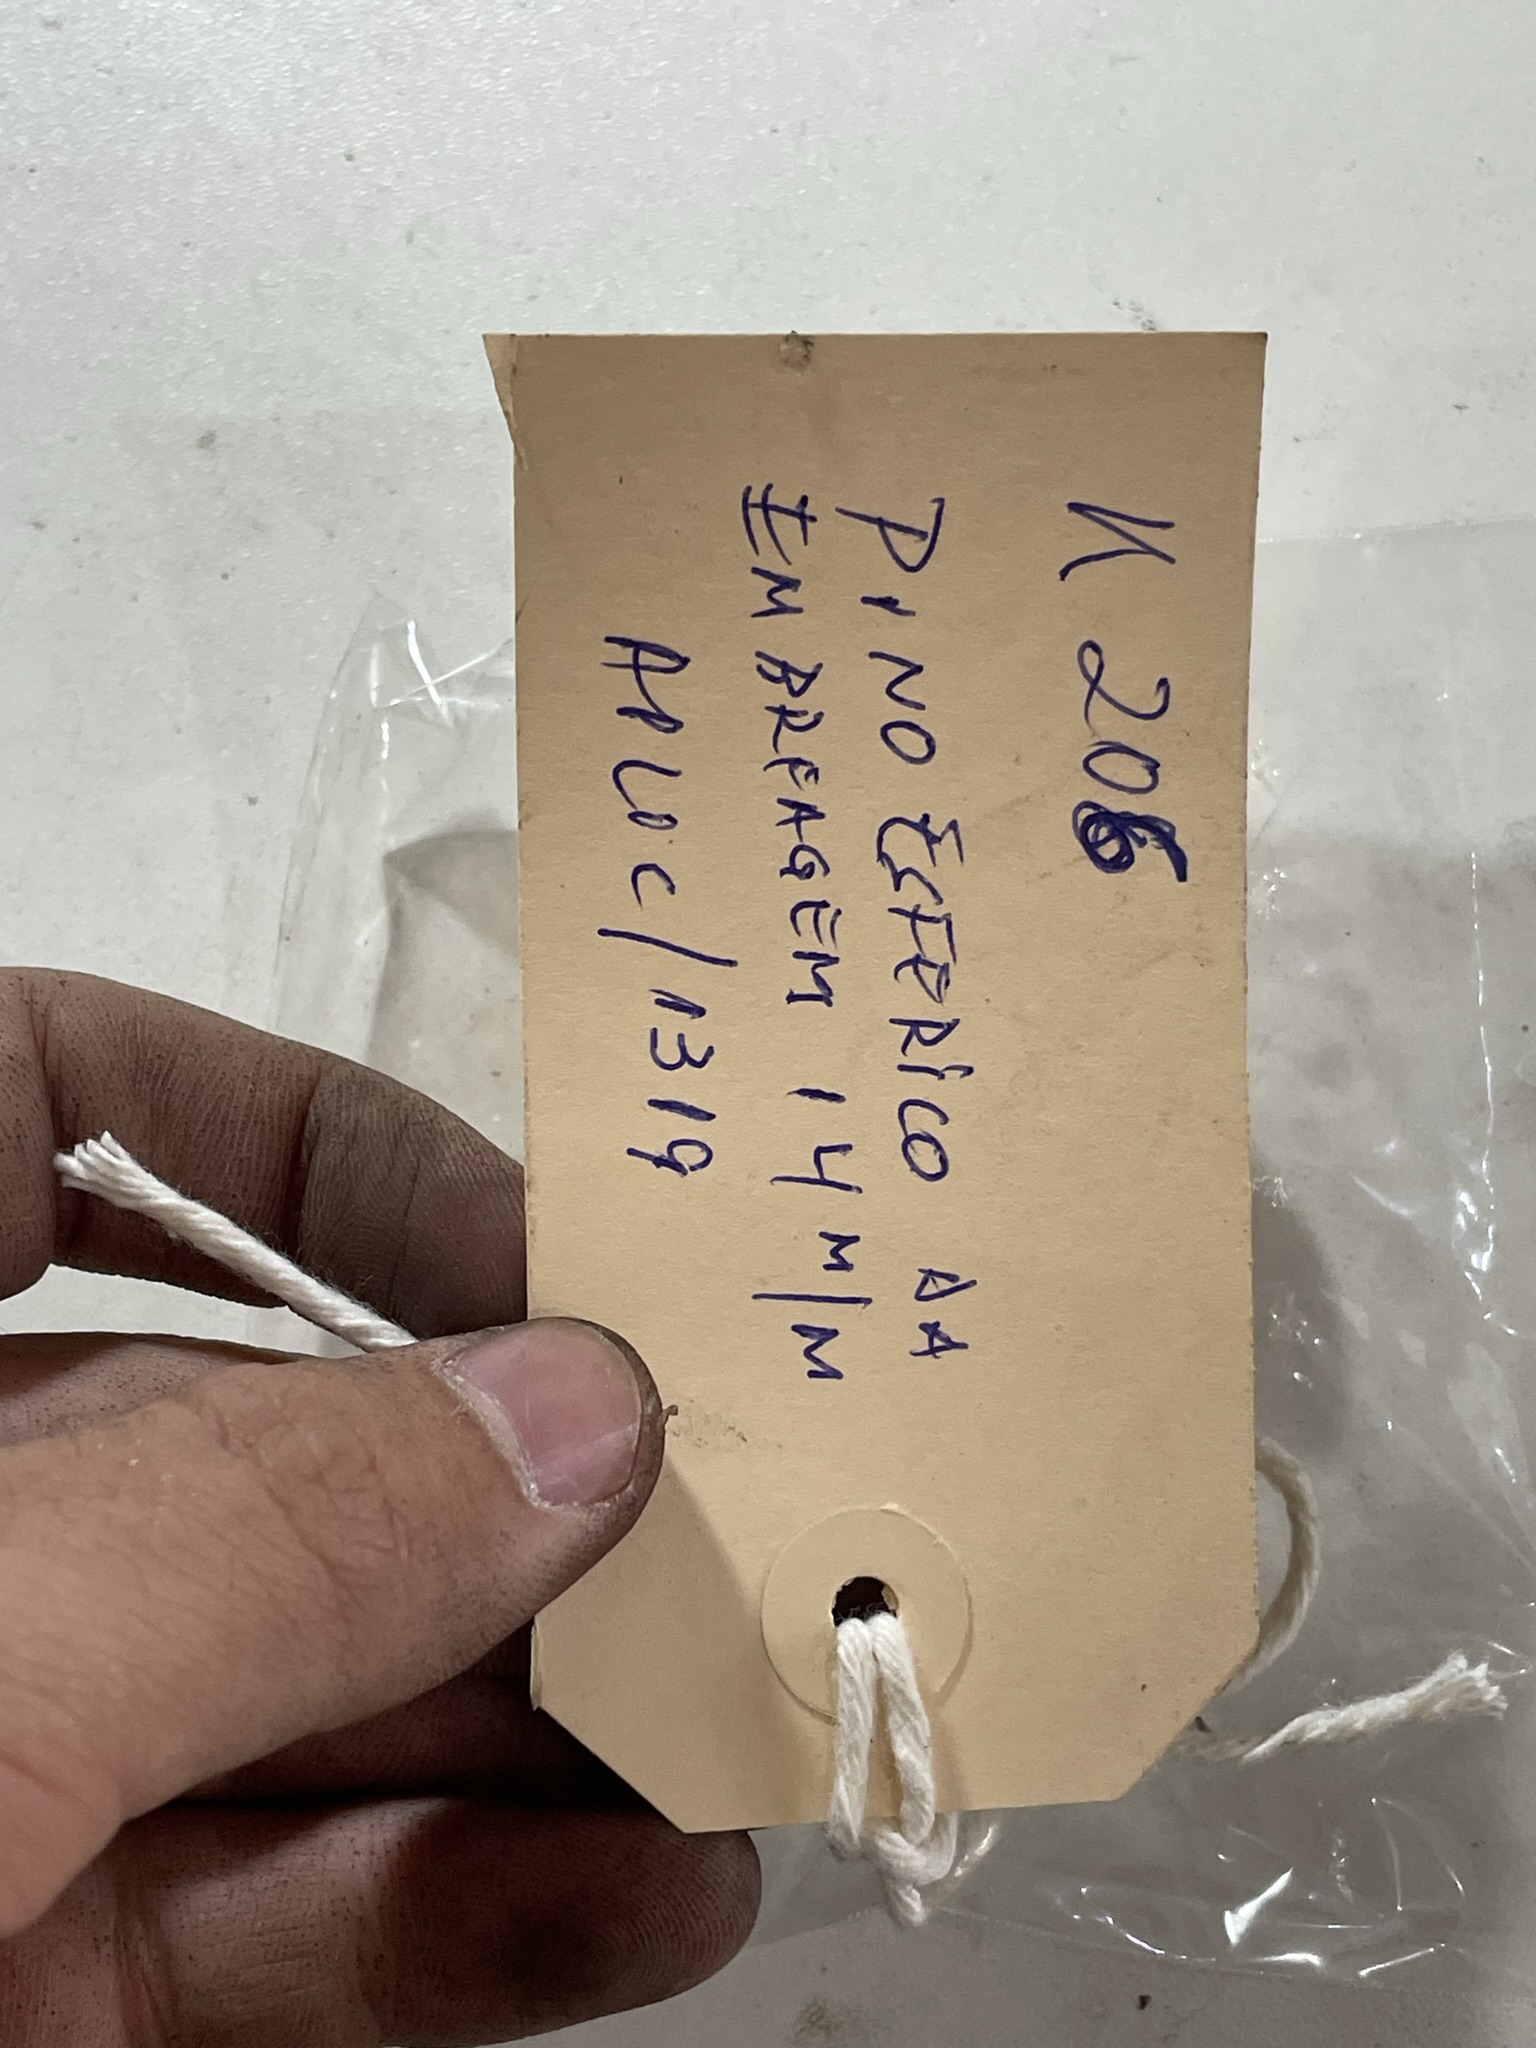 K 206
PINO ESFERICO DA
EMBREAGEM 14 M/M
APLOC/1319